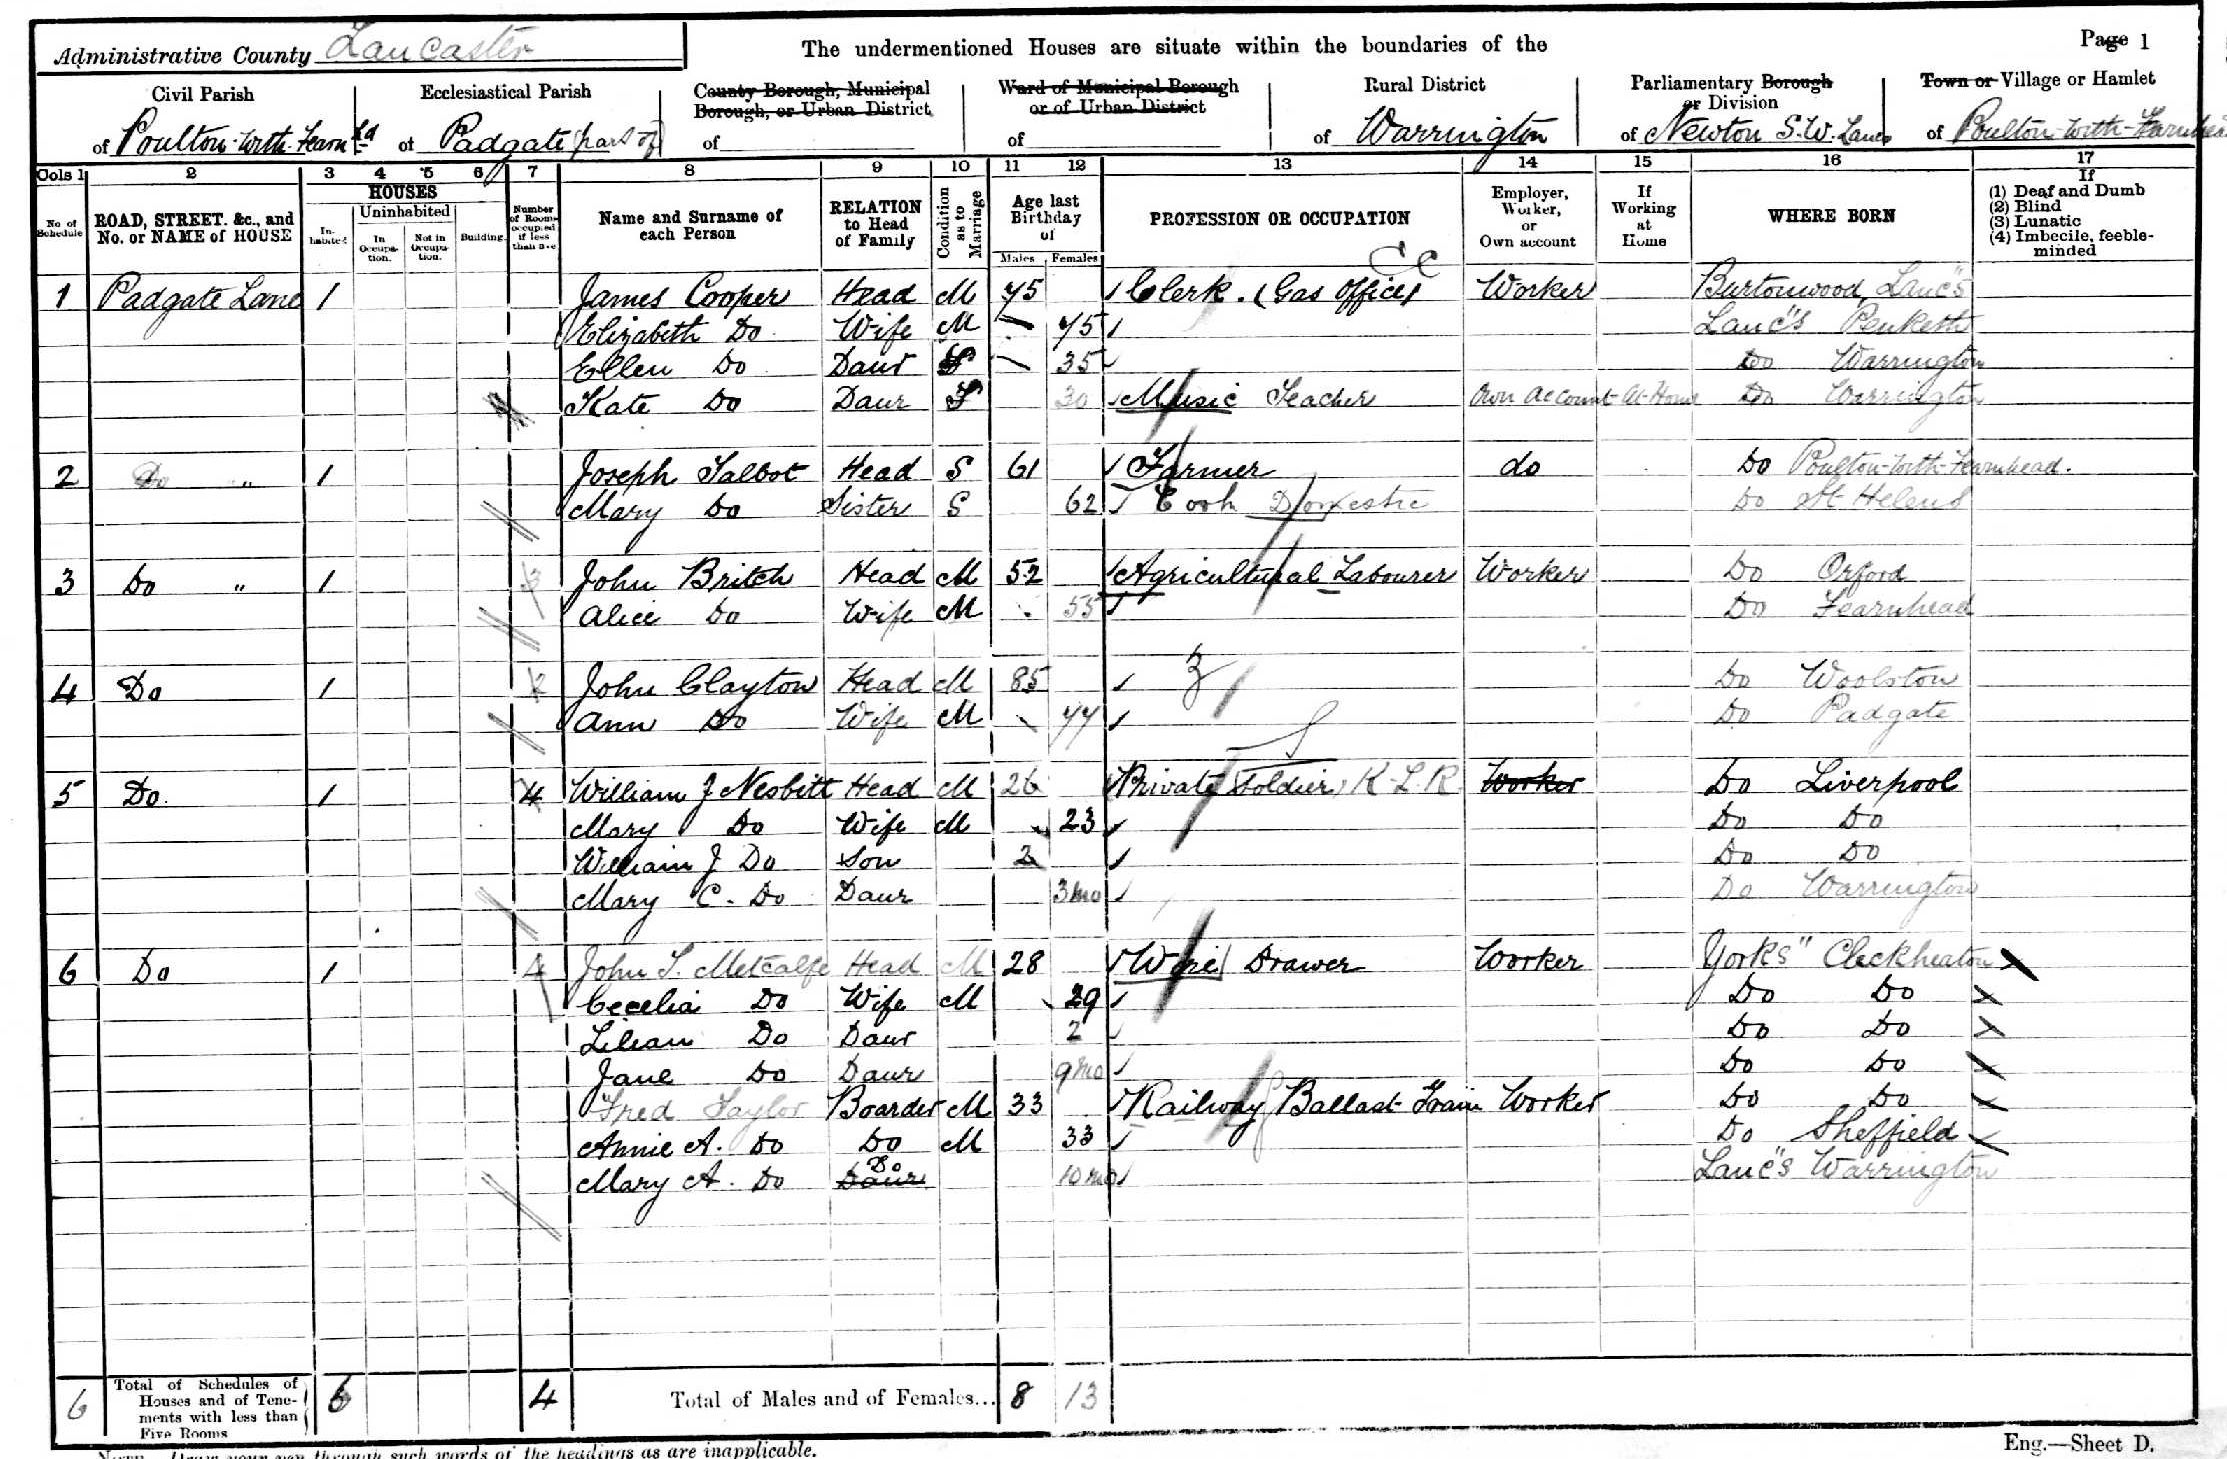 Administrative County Lancaster
The undermentioned Houses are situate within the boundaries of the
Page 1
Civil Parish
of Poulton-with-Fearnhd
Ecclesiastical Parish
of Padgate (part of)
County Borough, Municipal
Borough, or Urban District
of
Ward of Municipal Borough
or of Urban District
of
Rural District
of Warrington
Parliamentary Borough
or Division
of Newton S.W. Lancs
Town or Village or Hamlet
of Poulton-with-Fearnhead
Cols 1 2 3 4 5 6 7 8 9 10 11 12 13 14 15 16 17
No. of Schedule
ROAD, STREET, &c., and
No. or NAME of HOUSE
HOUSES
In-habited
Uninhabited
In Occupa-tion.
Not in Occupa-tion.
Building.
Number of Rooms occupied if less than five
Name and Surname of
each Person
RELATION
to Head
of Family
Condition as to Marriage
Age last
Birthday
of
Males Females
PROFESSION OR OCCUPATION
Employer,
Worker,
or
Own account
If
Working
at
Home
WHERE BORN
If
(1) Deaf and Dumb
(2) Blind
(3) Lunatic
(4) Imbecile, feeble-
minded
1 Padgate Lane 1 James Cooper Head M 75 Clerk. (Gas Office) Worker Burtonwood, Lancs
Elizabeth Do Wife M 75 Lancs Penketh
Ellen Do Daur S 35 Do Warrington
Kate Do Daur S 30 Music Teacher Own account At Home Do Warrington
2 Do " 1 Joseph Talbot Head S 61 Farmer do Do Poulton-with-Fearnhead.
Mary Do Sister S 62 Cook Domestic Do St Helens
3 Do " 1 3 John Britch Head M 52 Agricultural Labourer Worker Do Orford
Alice Do Wife M 55 Do Fearnhead
4 Do 1 2 John Clayton Head M 85 Do Woolston
Ann Do Wife M 77 Do Padgate
5 Do. 1 4 William J Nesbitt Head M 26 Private Soldier, K.L.R. Worker Do Liverpool
Mary Do Wife M 23 Do Do
William J Do Son 2 Do Do
Mary C. Do Daur 3 mo Do Warrington
6 Do 1 4 John T. Metcalfe Head M 28 Wire Drawer Worker Yorks" Cleckheaton
Cecelia Do Wife M 29 Do Do
Lilian Do Daur 2 Do Do
Jane Do Daur 9 mo Do Do
Fred Taylor Boarder M 33 Railway Ballast Train Worker Do Do
Annie A. Do Do M 33 Do Sheffield
Mary A. Do Daur Do 10 mo Lancs Warrington
6 Total of Schedules of
Houses and of Tene-
ments with less than
Five Rooms
6 4 Total of Males and of Females... 8 13
NOTE—Draw your pen through such words of the headings as are inapplicable.
Eng.—Sheet D.